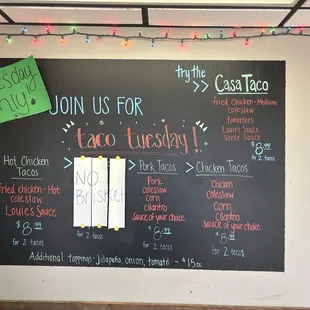 esday
nly!
JOIN US FOR
taco tuesday!
try the
CASA TACO
fried Chicken - Medium
coleslaw
tomatoes
Louie's Sauce
Verde Sauce
$8.99
for 2 tacos
Hot Chicken
Tacos
Fried chicken - Hot
coleslaw
Louie's Sauce
$8.99
for 2 tacos
NO
Brisket
for 2 tacos
Pork Tacos
Pork
coleslaw
corn
cilantro
sauce of your choice
$8.99
for 2 tacos
Chicken Tacos
Chicken
coleslaw
corn
cilantro
sauce of your choice
$8.99
for 2 tacos
Additional toppings - Jalapeño, onion, tomato - $.15 ea